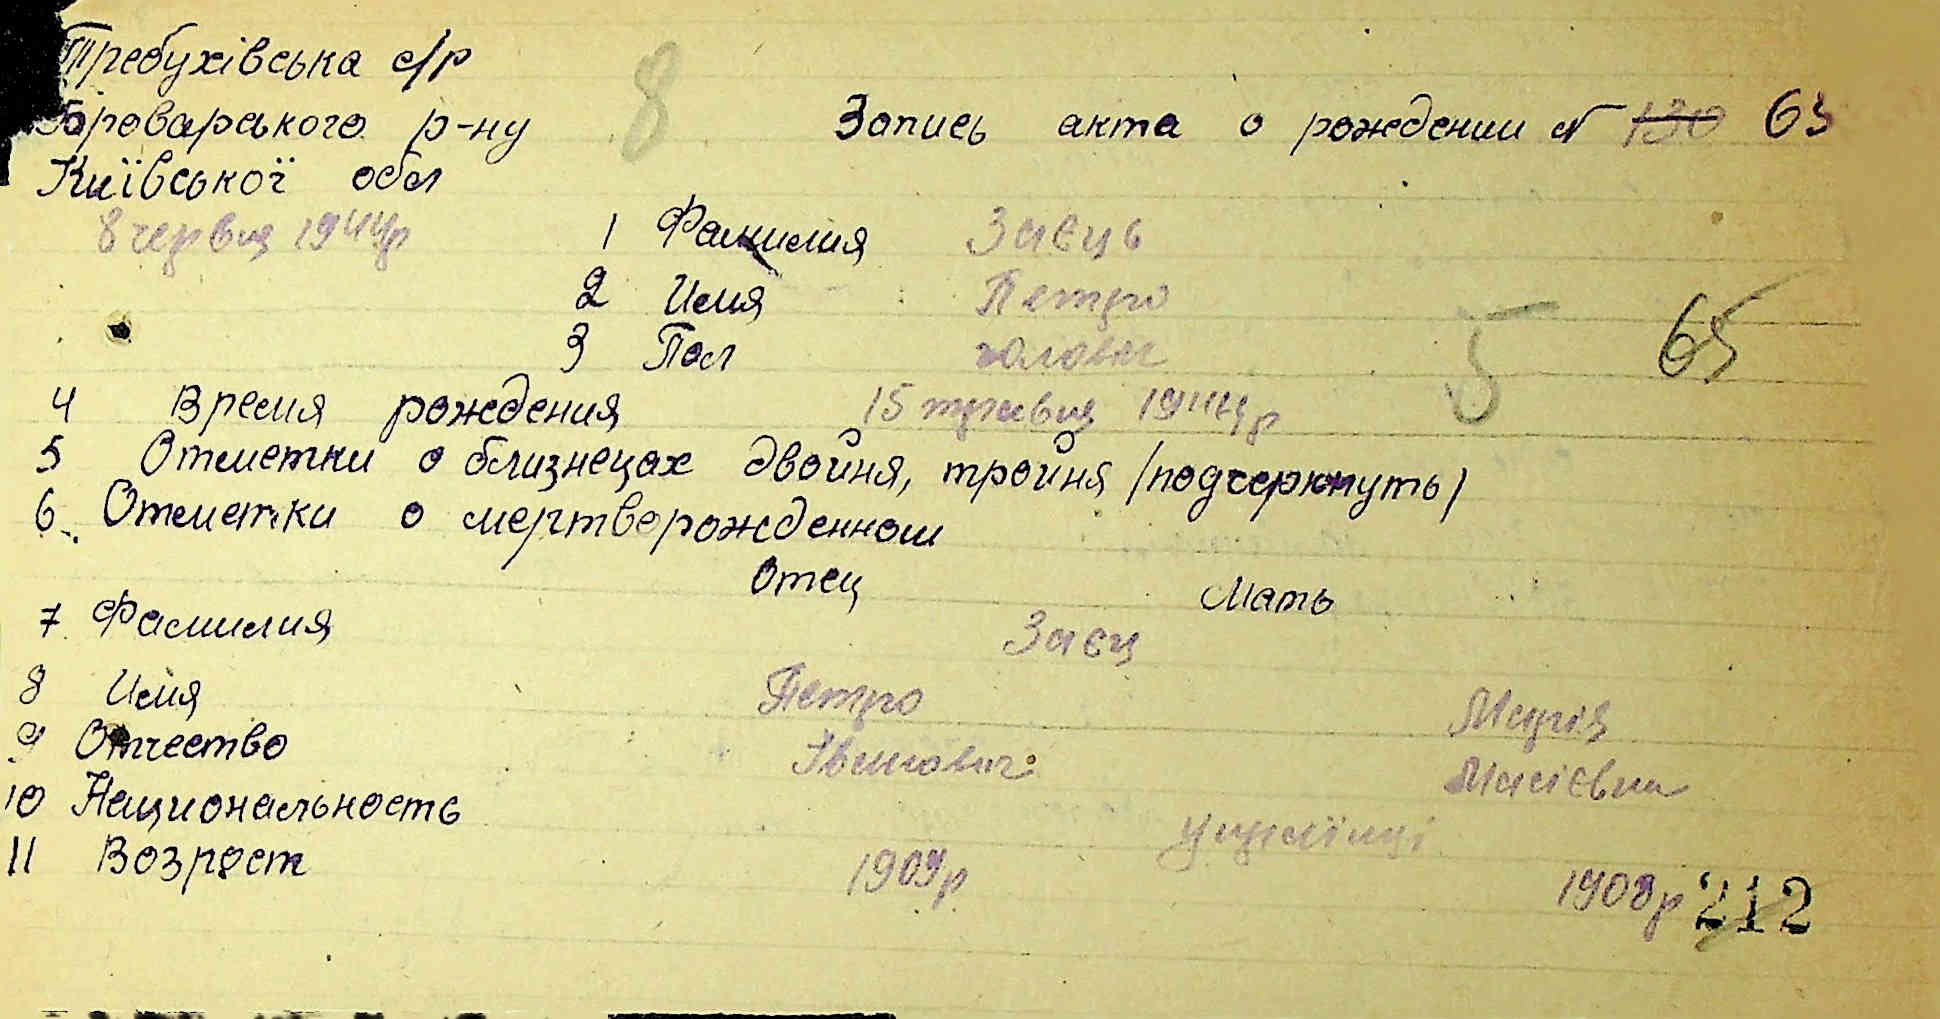 Требухівська с/р
8
Броварського р-ну
Запись акта о рождении № 130 65
Київської обл
8 червня 1944р
1 Фамилия Заєць
2 Имя Петро
3 Пол чоловіч
5
65
4 Время рождения 15 травня 1944р
5 Отметки о близнецах двойня, тройня /подчеркнуть/
6. Отметки о мертворожденном
Отец Мать
7. Фамилия Заєц
8 Имя Петро Марія
9 Отчество Іванович
10 Национальность українці
11 Возраст 1909р 1908р
212